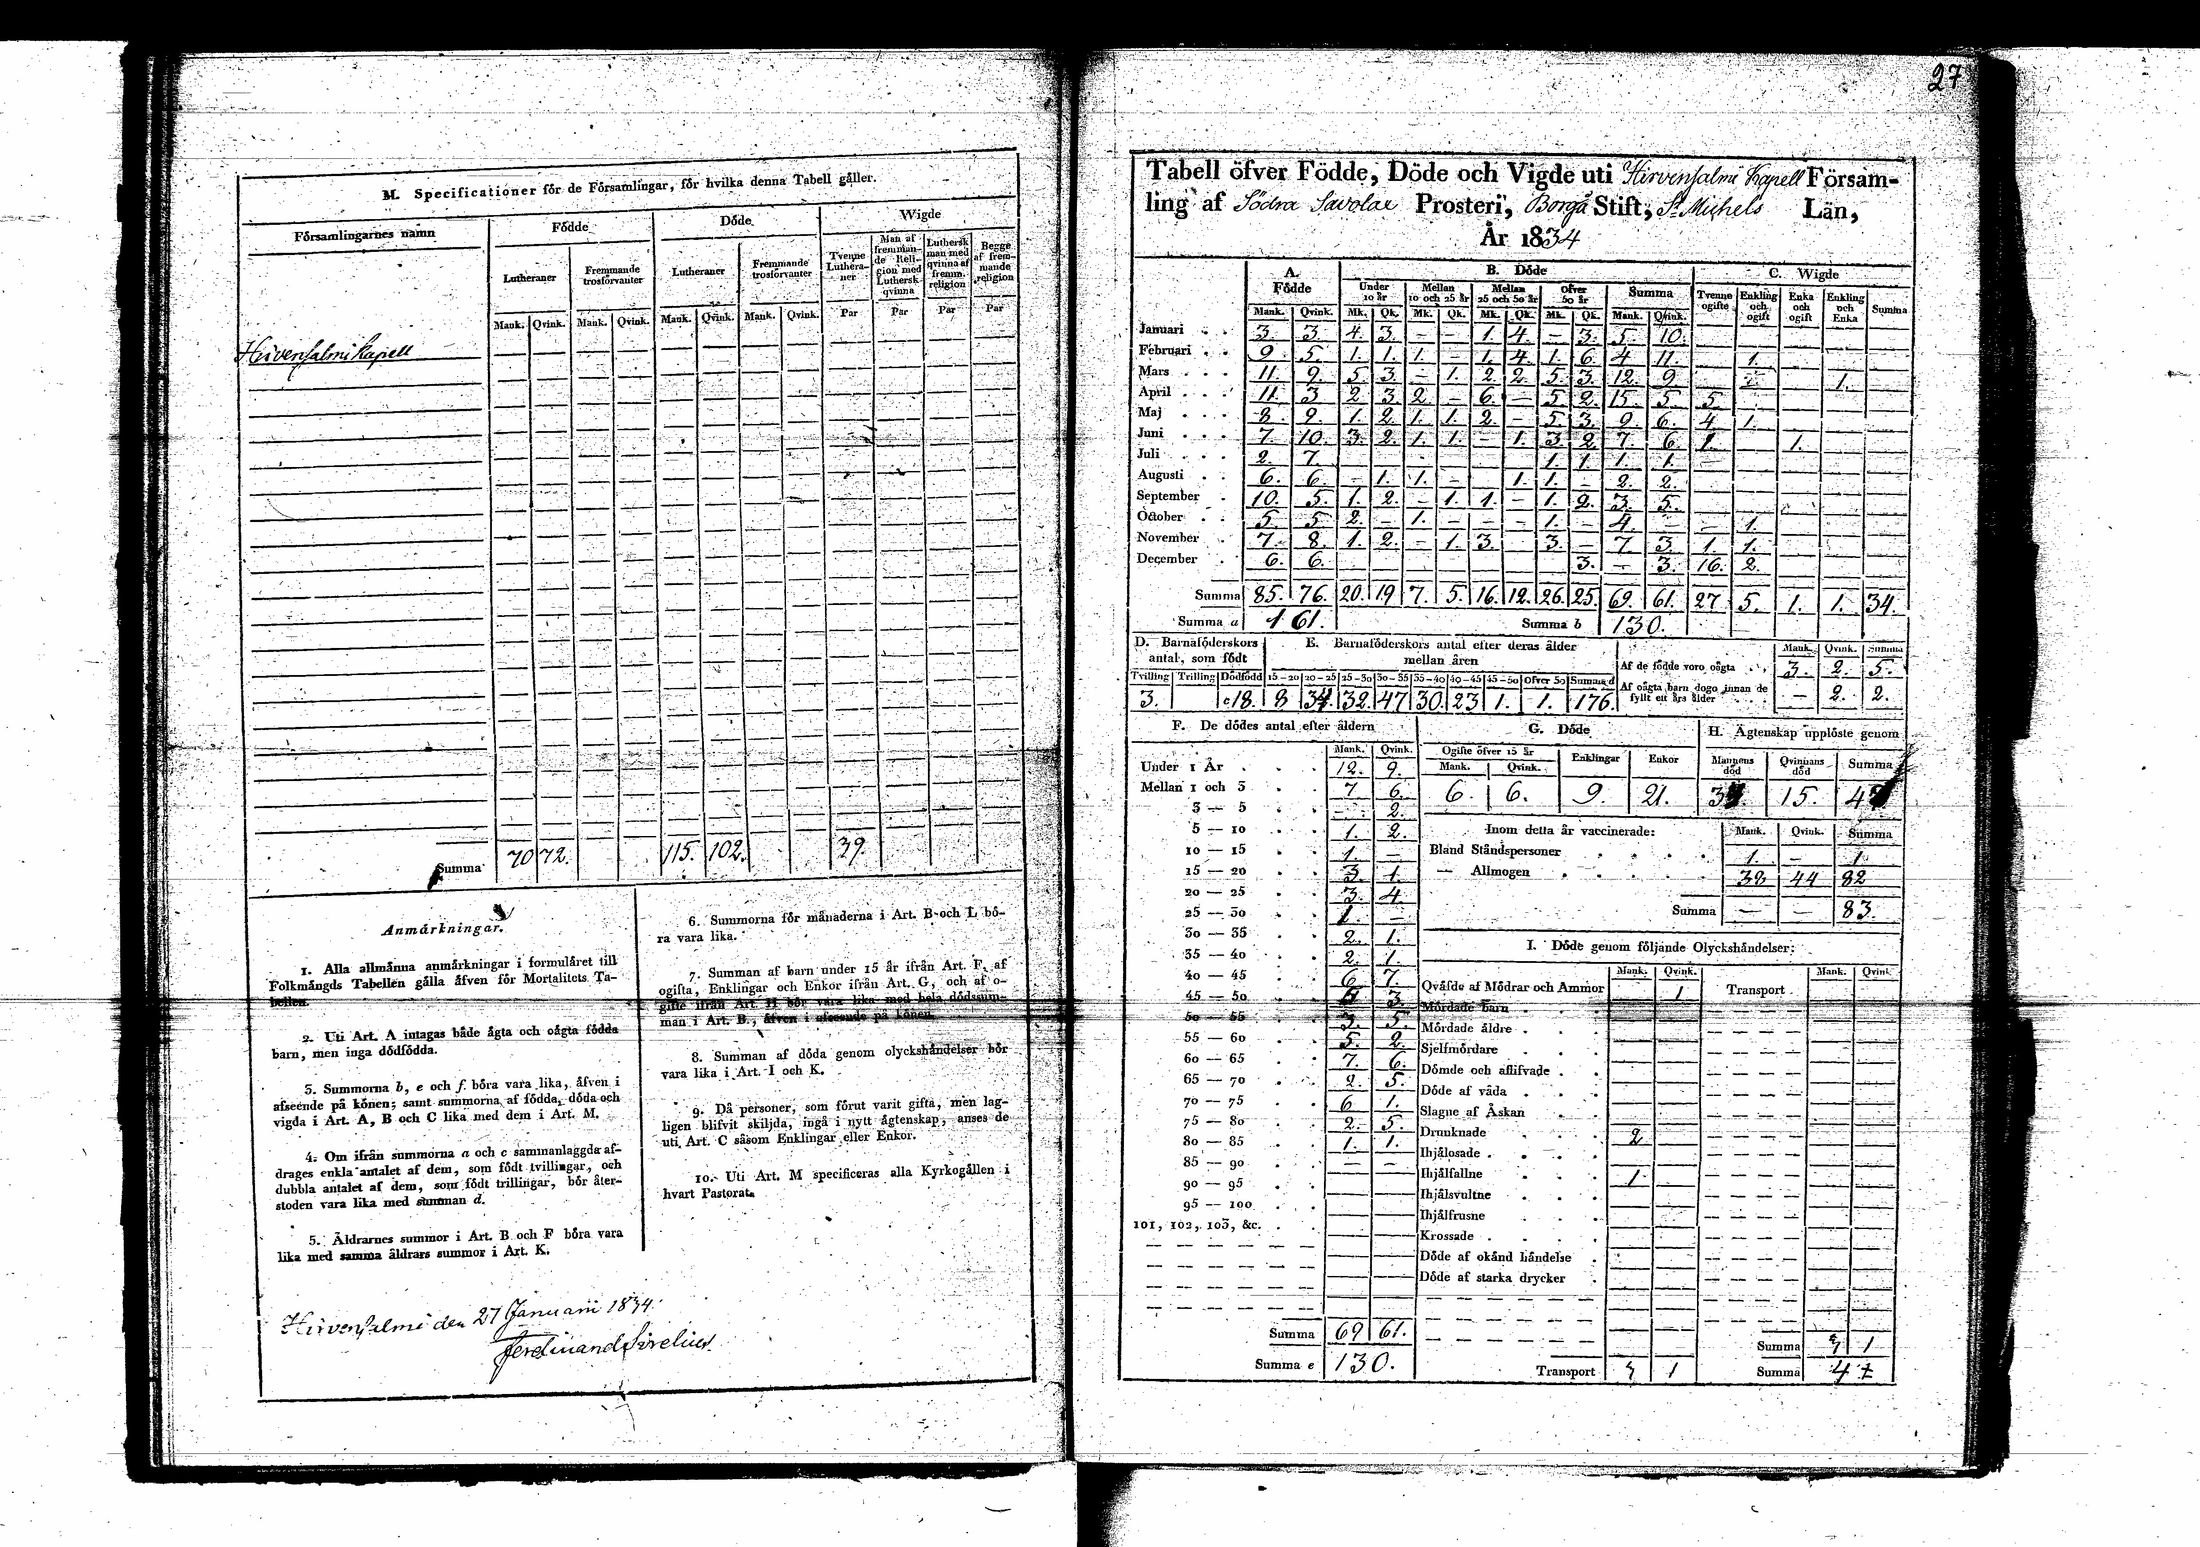 27
M. Specificationer för de Församlingar, för hvilka denna Tabell gäller.
Församlingarnes namn | Födde | Döde | Wigde
Lutheraner | Fremmande trosförvanter | Lutheraner | Fremmande trosförvanter | Tvenne Lutheraner | Man af fremmande Religion med Luthersk qvinna | Luthersk man med qvinna af fremm. religion | Begge af fremmande religion
Mank. | Qvink. | Mank. | Qvink. | Mank. | Qvink. | Mank. | Qvink. | Par | Par | Par | Par
Hirvensalmi Kapell
Summa | 70 | 72. | 115. | 102. | 39.
Anmärkningar.
1. Alla allmänna anmärkningar i formuläret till
Folkmängds Tabellen gälla äfven för Mortalitets Ta-
bellen.
2. Uti Art. A intagas både ägta och oägta födda
barn, men inga dödfödda.
3. Summorna b, e och f. böra vara lika, äfven i
afseende på könen; samt summorna af födda, döda och
vigda i Art. A, B och C lika med dem i Art. M.
4. Om ifrån summorna a och c sammanlaggda af-
drages enkla antalet af dem, som födt tvillingar, och
dubbla antalet af dem, som födt trillingar, bör åter-
stoden vara lika med summan d.
5. Åldrarnes summor i Art. B och F böra vara
lika med samma åldrars summor i Art. K.
6. Summorna för månaderna i Art. B och L bö-
ra vara lika.
7. Summan af barn under 15 år ifrån Art. F, af
ogifta, Enklingar och Enkor ifrån Art. G, och af o-
gifte ifrån Art. H bör vara lika med hela dödssum-
man i Art. B, äfven i afseende på könen.
8. Summan af döda genom olyckshändelser bör
vara lika i Art. I och K.
9. Då personer, som förut varit gifta, men lag-
ligen blifvit skiljda, ingå i nytt ägtenskap, anses de
uti Art. C såsom Enklingar eller Enkor.
10. Uti Art. M specificeras alla Kyrkogällen i
hvart Pastorat.
Hirvensalmi den 27 Januarii 1834.
Ferdinand Sirelius
Tabell öfver Födde, Döde och Vigde uti Hirvensalmi Kapell Försam-
ling af Södra Savolax Prosteri, Borgå Stift, St Michels Län,
År 1834
A. Födde | B. Döde | C. Wigde
Under 10 år | Mellan 10 och 25 år | Mellan 25 och 50 år | Öfver 50 år | Summa | Tvenne ogifte | Enkling och ogift | Enka och ogift | Enkling och Enka | Summa
Mank. | Qvink. | Mk. | Qk. | Mk. | Qk. | Mk. | Qk. | Mk. | Qk. | Mank. | Qvink.
Januari | 3. | 3. | 4. | 3. | – | – | 1. | 4. | – | 3. | 5. | 10.
Februari | 9. | 5. | 1. | 1. | 1. | – | 1. | 4. | 1. | 6. | 4 | 11. | 1.
Mars | 11. | 9. | 5. | 3. | – | 1. | 2. | 2. | 5. | 3. | 12. | 9 | 1.
April | 11. | 3 | 2 | 3 | 2. | – | 6. | – | 5 | 2. | 15. | 5. | 5.
Maj | 8. | 9. | 1. | 2. | 1. | 1. | 2. | – | 5. | 3. | 9. | 6. | 4. | 1.
Juni | 7. | 10. | 3. | 2. | 1. | 1. | – | 1. | 3. | 2. | 7. | 6. | 1. | 1.
Juli | 2. | 7. | 1. | 1. | 1. | 1.
Augusti | 6. | 6. | – | 1. | 1. | – | 1. | 1. | – | 2. | 2.
September | 10. | 5. | 1. | 2. | – | 1. | 1. | – | 1. | 2. | 3. | 5.
October | 5. | 5 | 2. | – | 1. | – | – | – | 1. | – | 4. | – | – | 1.
November | 7. | 8. | 1. | 2. | – | 1. | 3. | 3. | – | 7. | 3. | 1. | 1.
December | 6. | 6. | 3. | – | 3. | 16. | 2.
Summa | 85. | 76. | 20. | 19 | 7. | 5. | 16. | 12. | 26. | 25. | 69. | 61. | 27 | 5. | 1. | 1. | 34.
Summa a | 161. | Summa b | 130.
D. Barnaföderskors antal, som födt
Tvilling | Trilling | Dödfödd
3. | c 18.
E. Barnaföderskors antal efter deras ålder mellan åren
15–20 | 20–25 | 25–30 | 30–35 | 35–40 | 40–45 | 45–50 | Öfver 50 | Summa d
8 | 34. | 32. | 47 | 30. | 23 | 1. | 1. | 176.
Mank. | Qvink. | Summa
Af de födde voro oägta | 3. | 2. | 5.
Af oägta barn dogo innan de fyllt ett års ålder | – | 2. | 2.
F. De dödes antal efter åldern
Mank. | Qvink.
Under 1 År | 12. | 9.
Mellan 1 och 3 | 7 | 6.
3 — 5 | – | 2.
5 — 10 | 1. | 2.
10 — 15 | 1. | –
15 — 20 | 3. | 1.
20 — 25 | 3. | 4.
25 — 30 | 1. | –
30 — 35 | 2. | 1.
35 — 40 | 2. | 1.
40 — 45 | 6 | 7.
45 — 50 | 3.
50 — 55 | 3. | 5.
55 — 60 | 5. | 2.
60 — 65 | 7. | 6.
65 — 70 | 2. | 5.
70 — 75 | 6 | 1.
75 — 80 | 2. | 5.
80 — 85 | 1. | 1.
85 — 90 | – | –
90 — 95
95 — 100
101, 102, 103, &c.
Summa | 69 | 61.
Summa e | 130.
G. Döde
Ogifte öfver 15 år | Enklingar | Enkor
Mank. | Qvink.
6. | 6. | 9. | 21.
H. Ägtenskap upplöste genom
Mannens död | Qvinnans död | Summa
15.
Inom detta år vaccinerade: | Mank. | Qvink. | Summa
Bland Ståndspersoner | 1. | – | 1.
— Allmogen | 38 | 44 | 82
Summa | — | — | 83.
I. Döde genom följande Olyckshändelser:
Mank. | Qvink. | Mank. | Qvink.
Qväfde af Mödrar och Ammor | 1 | Transport
Mördade barn
Mördade äldre
Sjelfmördare
Dömde och aflifvade
Döde af våda
Slagne af Åskan
Drunknade | 2
Ihjälosade
Ihjälfallne | 1.
Ihjälsvultne
Ihjälfrusne
Krossade
Döde af okänd händelse
Döde af starka drycker
Summa | 3 | 1
Transport | 3 | 1 | Summa | 4